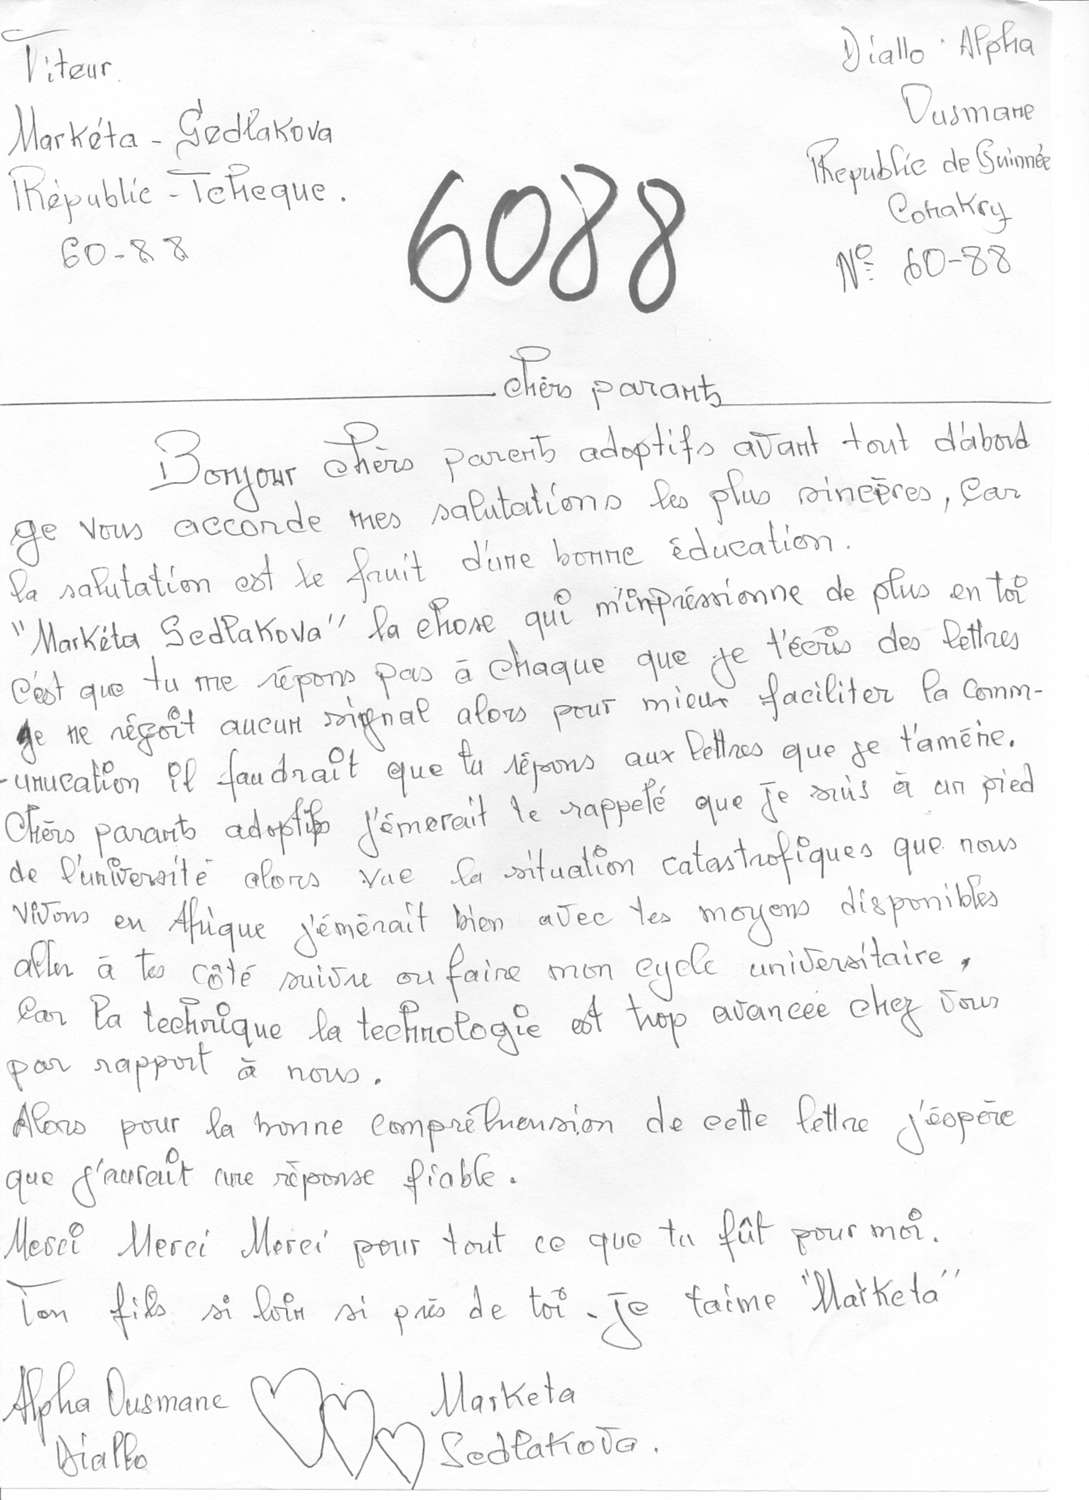 Viteur.
Markéta - Sedlakova
République - Tcheque.
60-88
Diallo Alpha
Ousmane
Republic de Guinnée
Conakry
N° 60-88
6088
Chèrs parants
Bonjour Chèrs parents adoptifs avant tout d'abord
je vous accorde mes salutations les plus sincères, Car
la salutation est le fruit d'une bonne éducation.
"Markéta Sedlakova" la chose qui m'inpréssionne de plus en toi
C'ést que tu me répons pas à chaque que je t'écris des lettres
je ne réçoit aucun signal alors pour mieux faciliter la comm-
-unucation il faudrait que tu répons aux lettres que je t'améne.
Chèrs parants adoptifs j'émerait te rappelé que je suis à un pied
de l'université alors vue la situation catastrofiques que nous
vivons en Afrique j'émérait bien avec tes moyens disponibles
aller à tes côté suivre ou faire mon cycle universitaire,
Car la technique la technologie est trop avancée chez vous
par rapport à nous.
Alors pour la bonne compréhension de cette lettre j'éspère
que j'aurait une réponse fiable.
Merci Merci Merci pour tout ce que tu fût pour moi.
Ton fils si loin si près de toi. Je t'aime "Marketa"
Alpha Ousmane
Diallo
Marketa
Sedlakova.